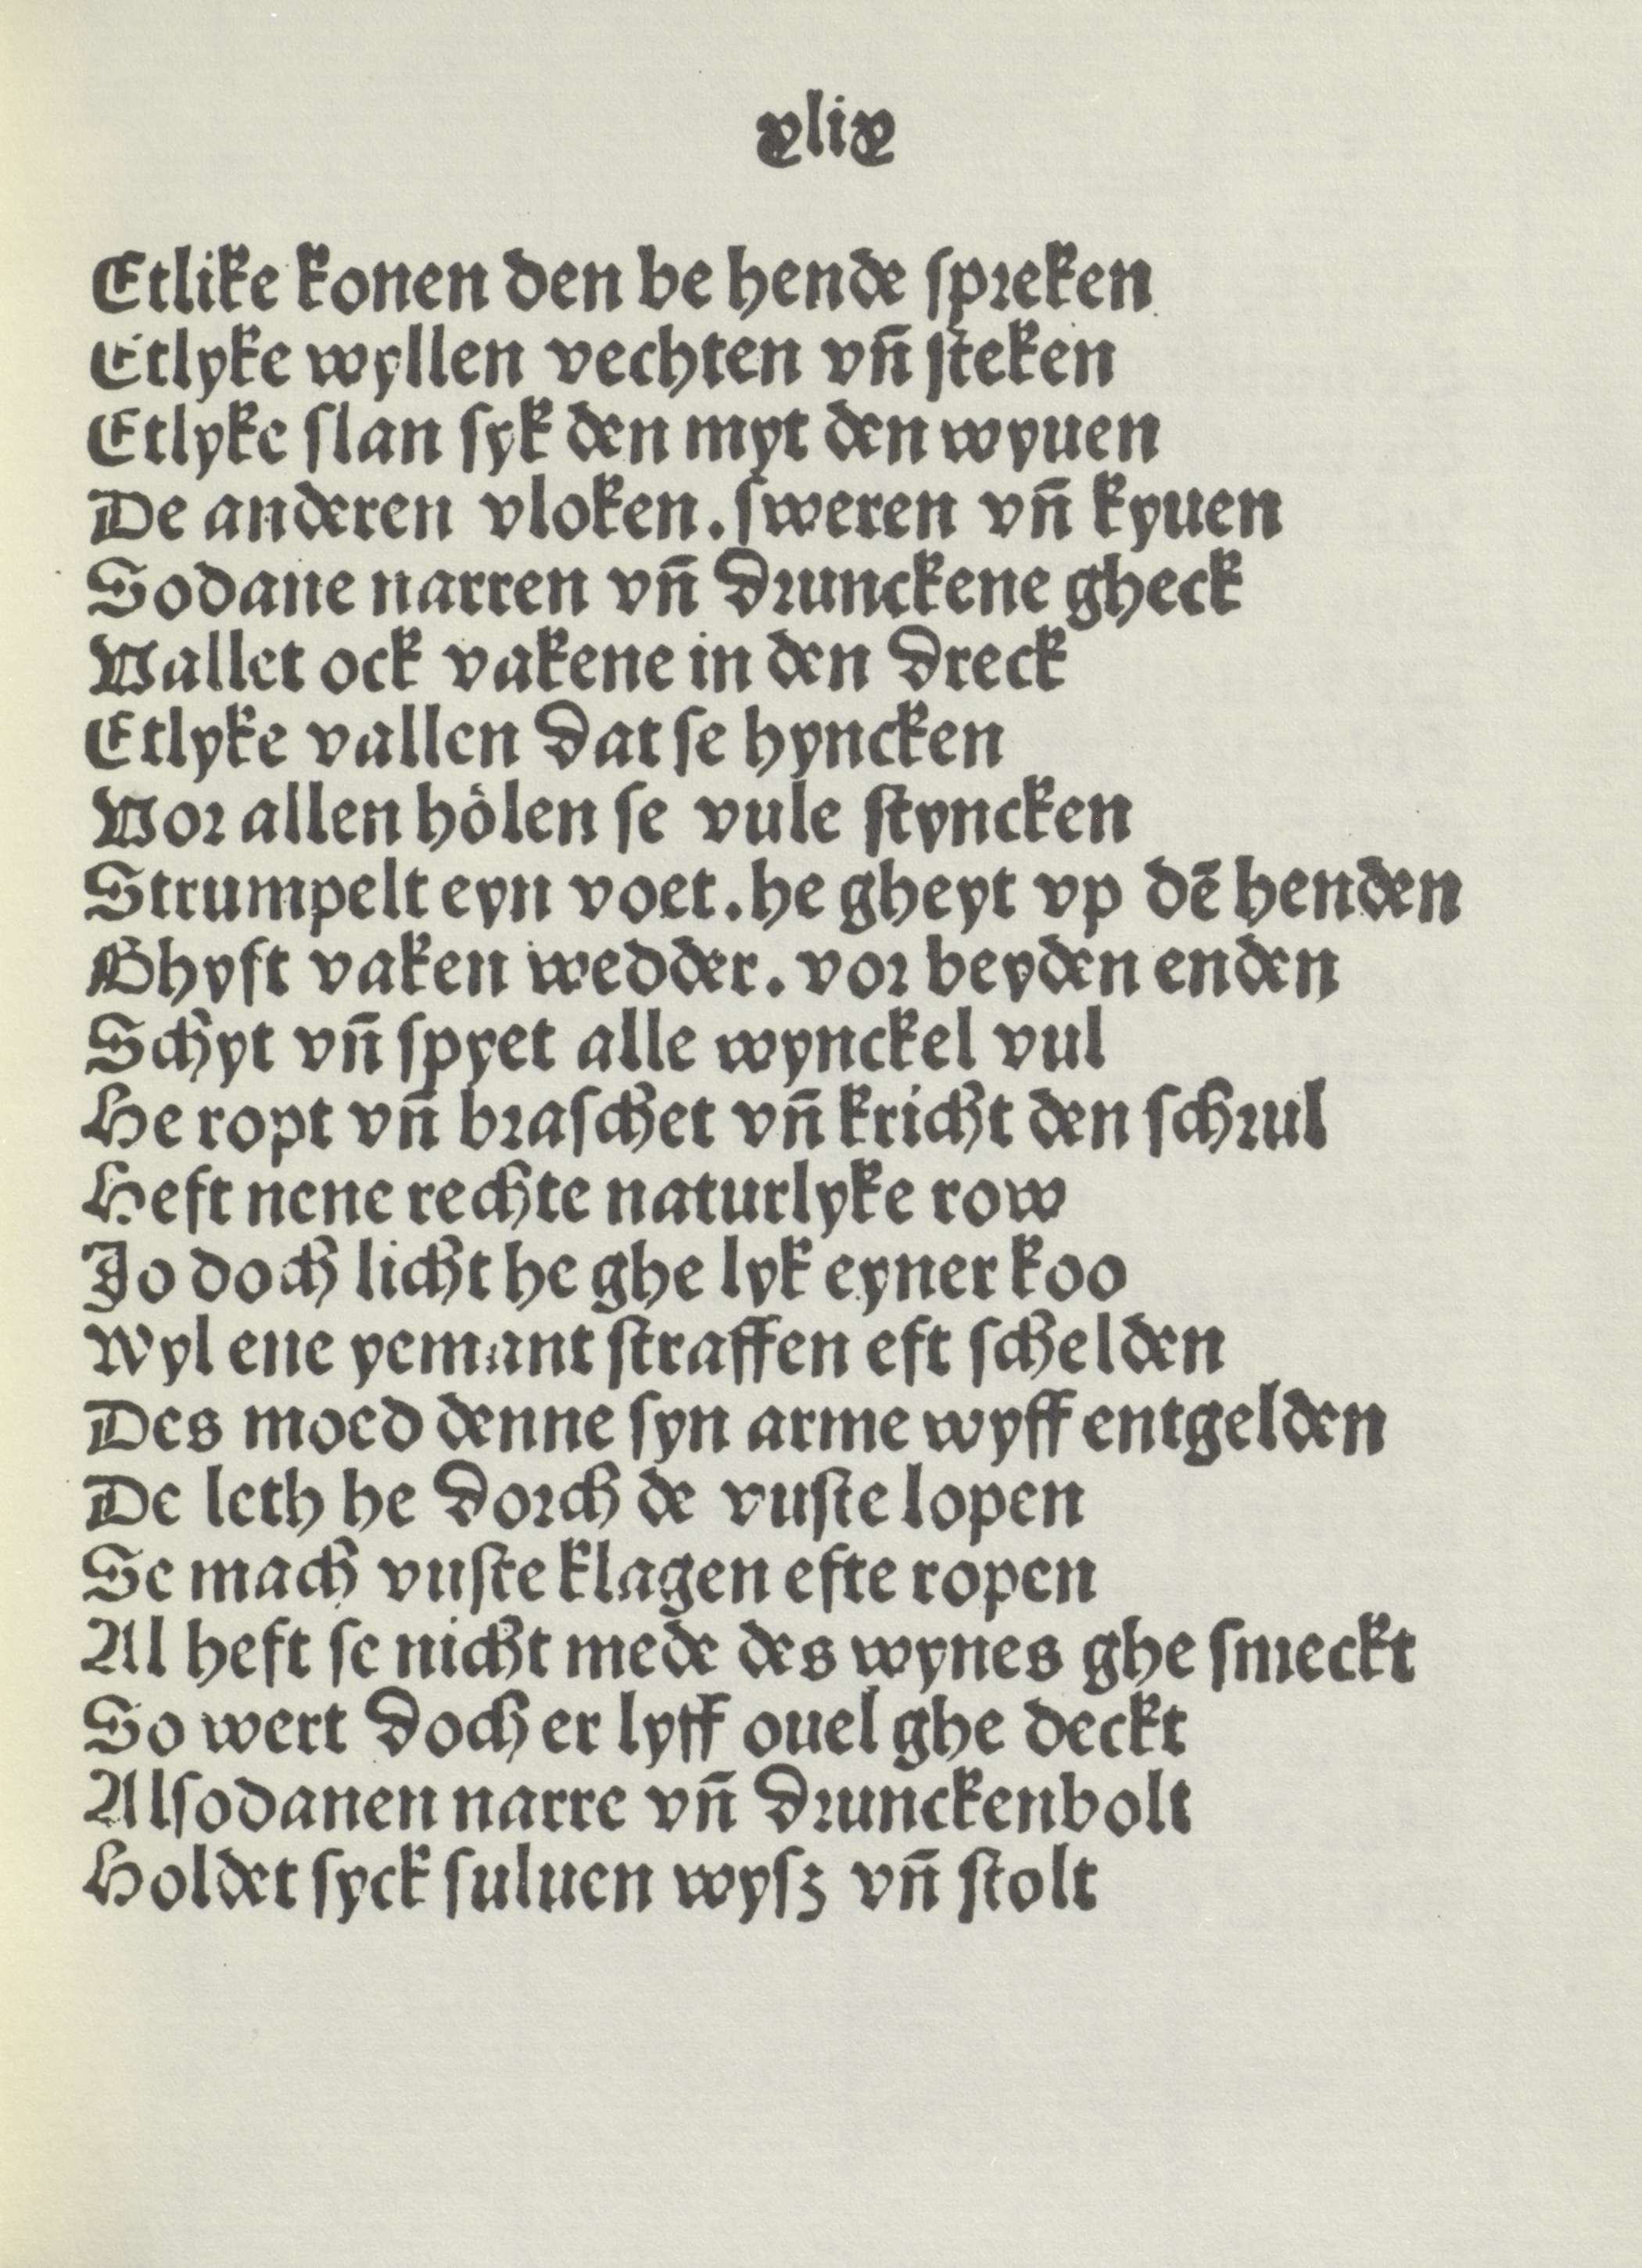 xlix
Etlike konen den be hende ſpreken
Etlyke wyllen vechten vn̄ ſteken
Etlyke ſlan ſyk den myt den wyuen
De anderen vloken. ſweren vn̄ kyuen
Sodane narren vn̄ drunckene gheck
Vallet ock vakene in den dreck
Etlyke vallen dat ſe hyncken
Vor allen hölen ſe vule ſtyncken
Strumpelt eyn voet. he gheyt vp dē henden
Ghyft vaken wedder. vor beyden enden
Schyt vn̄ ſpyet alle wynckel vul
He ropt vn̄ braſchet vn̄ kricht den ſchrul
Heft nene rechte naturlyke row
Jo doch licht he ghe lyk eyner koo
Wyl ene yemant ſtraffen eft ſchelden
Des moed denne ſyn arme wyff entgelden
De leth he dorch de vuſte lopen
Se mach vuſte klagen efte ropen
Al heft ſe nicht mede des wynes ghe ſmeckt
So wert doch er lyff ouel ghe deckt
Alſodanen narre vn̄ drunckenbolt
Holdet ſyck ſuluen wyſz vn̄ ſtolt